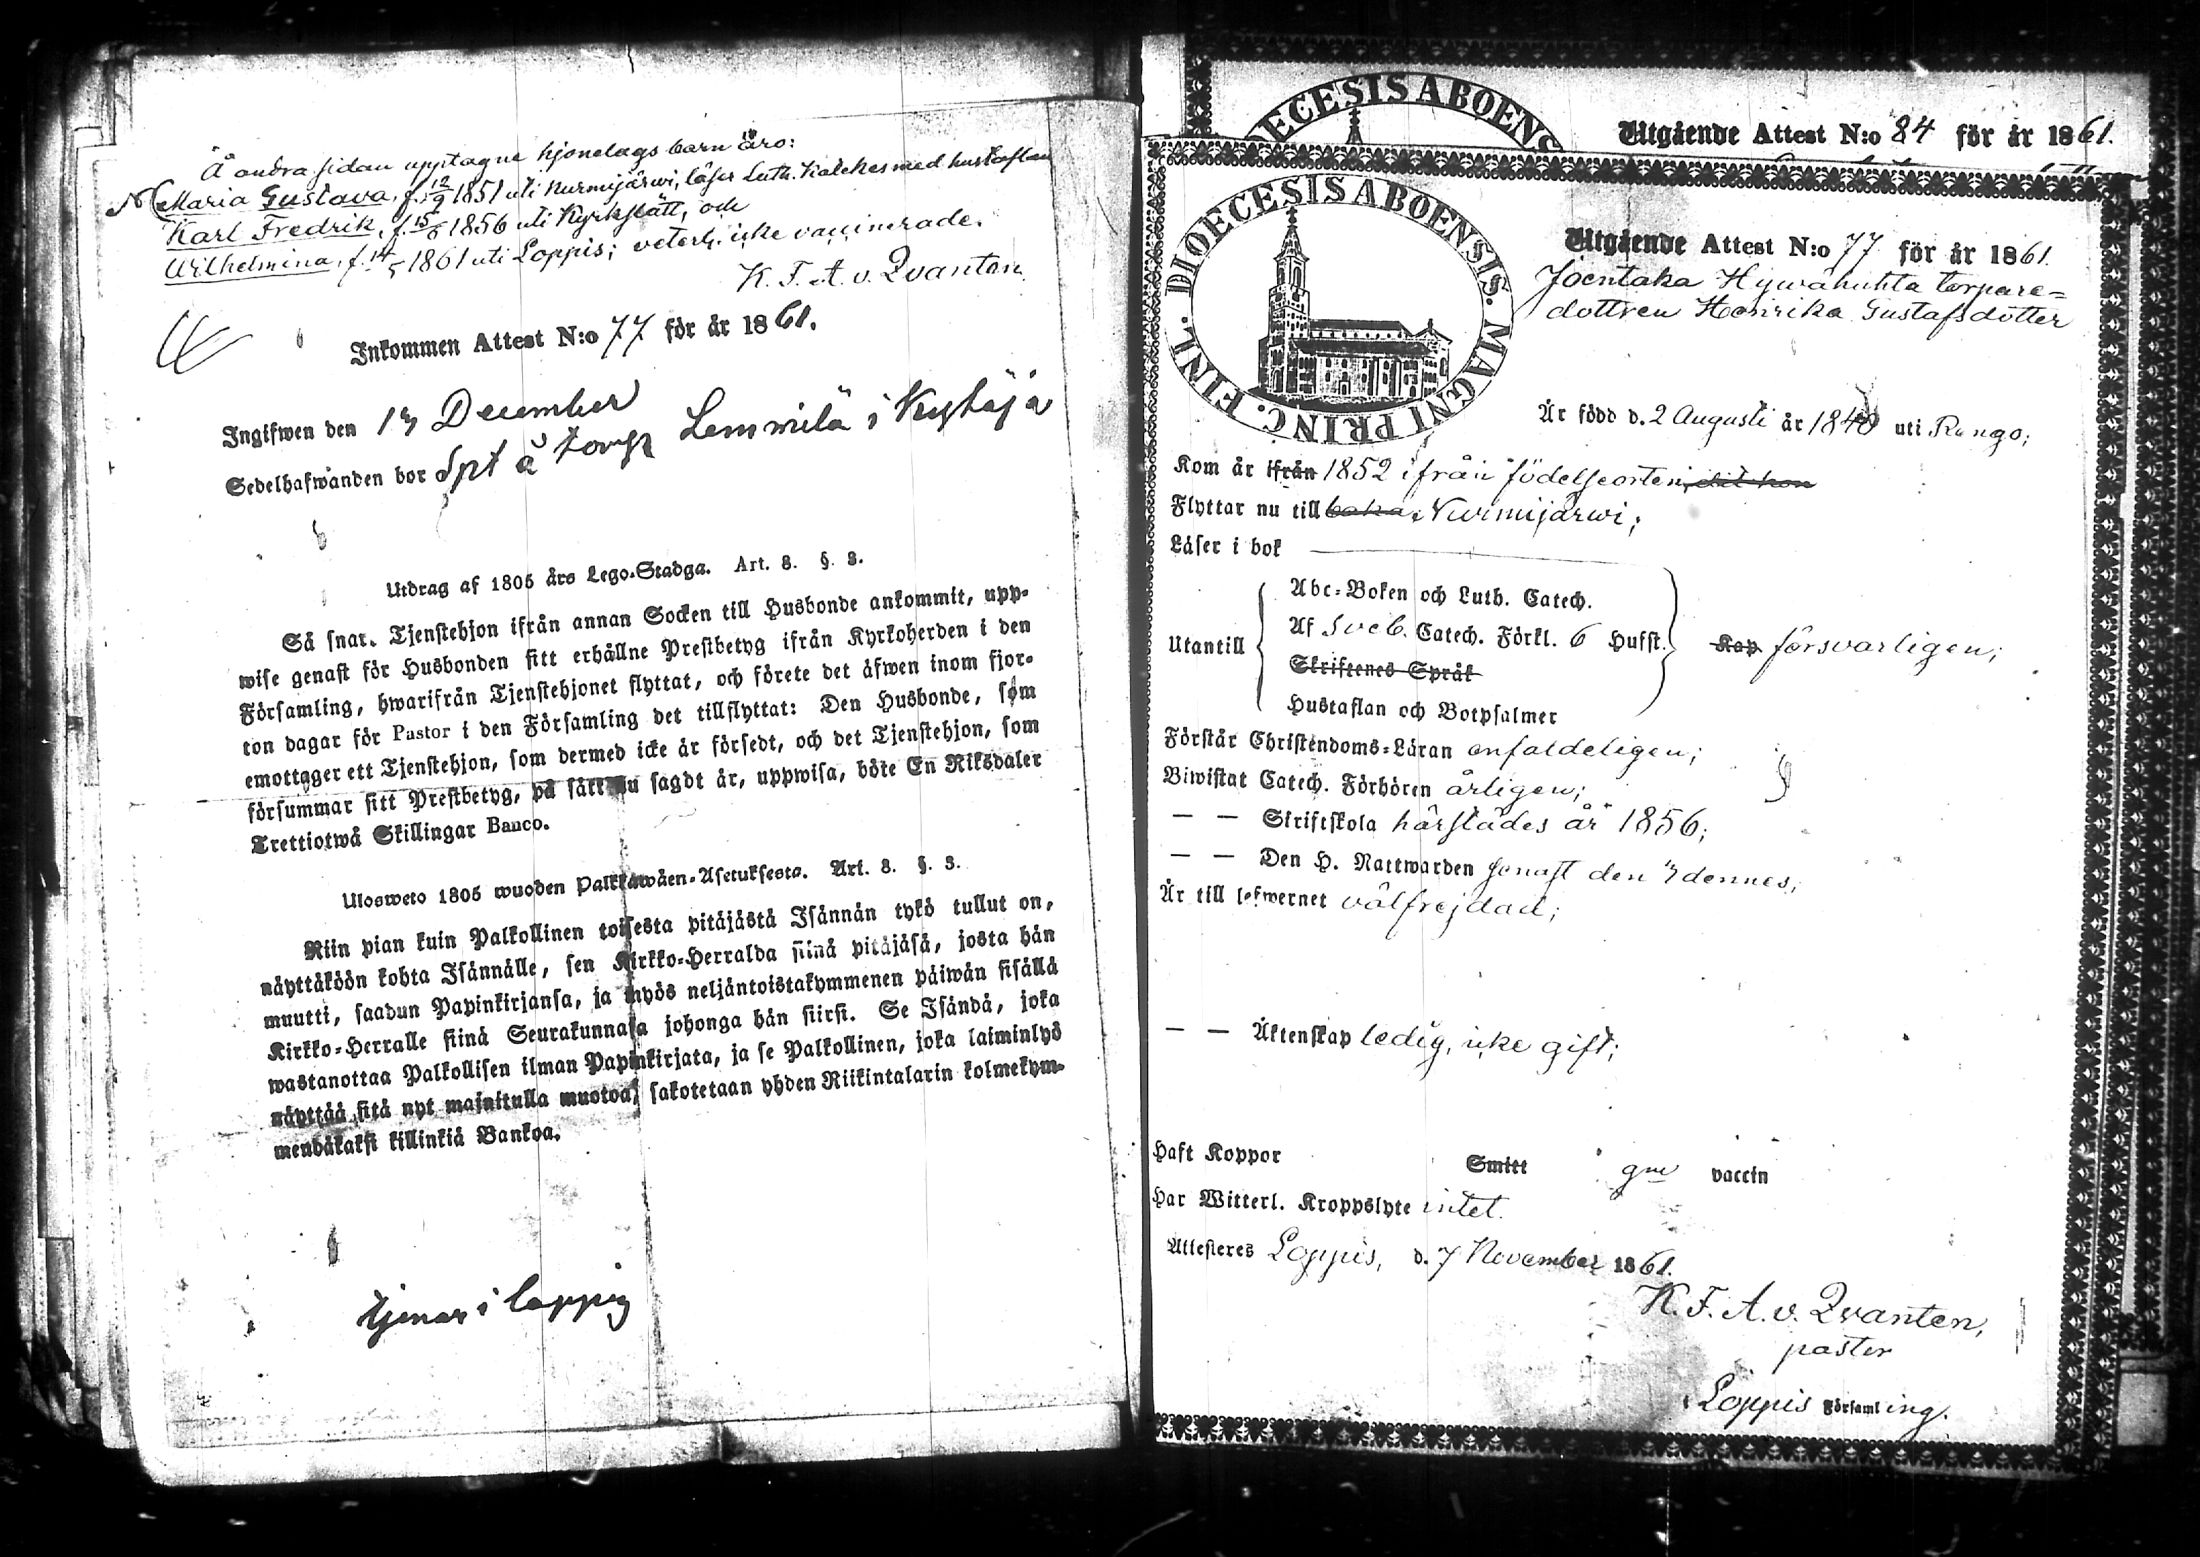 Å andra sidan upptagne hjonelags barn äro:
Maria Gustava, f. 12/9 1851 uti Nurmijärwi, läser Luth. Katekes med hustaflan
Karl Fredrik, f. 15/6 1856 uti Kyrkslätt, och
Wilhelmina, f. 14/5 1861 uti Loppis; veterl. icke vaccinerade.
K. F. A. v. Qvanten
Inkommen Attest N:o 77 för år 1861.
Ingifwen den 17 December
Sedelhafwanden bor Spt å torp Lemmilä i Kytäjä
Utdrag af 1805 års Lego-Stadga. Art. 8. §. 3.
Så snar. Tjenstehjon ifrån annan Socken till Husbonde ankommit, upp-
wise genast för Husbonden sitt erhållne Prestbetyg ifrån Kyrkoherden i den
Församling, hwarifrån Tjenstehjonet flyttat, och förete det äfwen inom fjor-
ton dagar för Pastor i den Församling det tillflyttat: Den Husbonde, som
emottager ett Tjenstehjon, som dermed icke är försedt, och det Tjenstehjon, som
försummar sitt Prestbetyg, på sätt nu sagdt är, uppwisa, böte En Riksdaler
Trettiotwå Skillingar Banco.
Ulosweto 1805 wuoden Palkkawäen-Asetuksesta. Art. 8. §. 3.
Niin pian kuin Palkollinen toisesta pitäjästä Isännän tykö tullut on,
näyttäköön kohta Isännälle, sen Kirkko-Herralda siinä pitäjäsä, josta hän
muutti, saadun Papinkirjansa, ja myös neljäntoistakymmenen päiwän sisällä
Kirkko-Herralle siinä Seurakunnasa johonga hän siirsi. Se Isändä, joka
wastanottaa Palkollisen ilman Papinkirjata, ja se Palkollinen, joka laiminlyö
näyttää sitä nyt mainitulla muotoa, sakotetaan yhden Riikintalarin kolmekym-
mendäkaksi killinkiä Bankoa.
tjenar i Loppis
DIOECESIS ABOENS
Utgående Attest N:o 84 för år 1861.
DIOECESIS ABOENSIS. MAGNI PRINC. FINL.
Utgående Attest N:o 77 för år 1861.
Joentaka Hywähuhta torpare-
dottren Henrika Gustafsdotter
Är född d. 2 Augusti år 1840 uti Rengo;
Kom år ifrån 1852 ifrån födelseorten, dit hon
Flyttar nu till baka Nurmijärwi;
Läser i bok
Utantill
Abc-Boken och Luth. Catech.
Af Sveb. Catech. Förkl. 6 Hufst.
Skriftenes Språk
Hustaflan och Botpsalmer
Kap försvarligen;
Förstår Christendoms-Läran enfaldeligen;
Biwistat Catech. Förhören årligen;
— — Skriftskola härstädes år 1856;
— — Den H. Nattwarden senast den 7 dennes;
Är till lefwernet välfrejdad;
— — Äktenskap ledig, icke gift;
Haft Koppor Smitt gm vaccin
Har Witterl. Kroppslyte intet.
Attesteres Loppis, d. 7 November 1861.
K. F. A. v. Qvanten,
pastor
Loppis Församling.